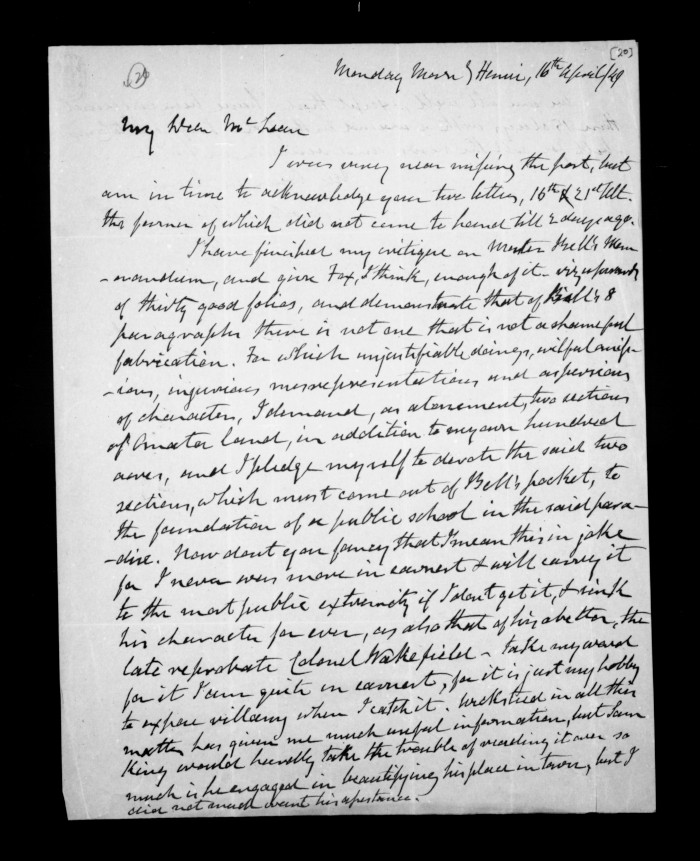 (20)
20
Monday Morng Henui, 16th April /49
My Dear McLean
I was very near missing the post, but
am in time to acknowledge your two letters, 16th & 21st Ult.
the former of which did not come to hand till 2 days ago.
I have finished my critique on Master Bell's Mem
-orandum, and give Fox, I think, enough of it - viz upwards
of thirty good folios, and demonstrate that of Bell's 8
paragraphs there is not one that is not a shameful
fabrication. For which unjustifiable doings, wilful omiss-
-ions, injurious misrepresentations and aspersions
of character, I demand, as atonement, two sections
of Omata land, in addition to my own hundred
acres, and I pledge myself to devote the said two
sections, which must come out of Bell's pocket, to
the foundation of a public school in the said para-
-dise. Now dont you fancy that I mean this in joke
for I never was more in earnest & will carry it
to the most public extremity if I dont get it, & sink
his character for ever, as also that of his abettor, the
late reprobate Colonel Wakefield - take my word
for it I am quite in earnest, for it is just my hobby
to expose villainy when I catch it. Wicksteed in all this
matter has given me much useful information, but Sam
King would hardly take the trouble of reading it over so
much is he engaged in beautifying his place in town, but I
did not much want his assistance.